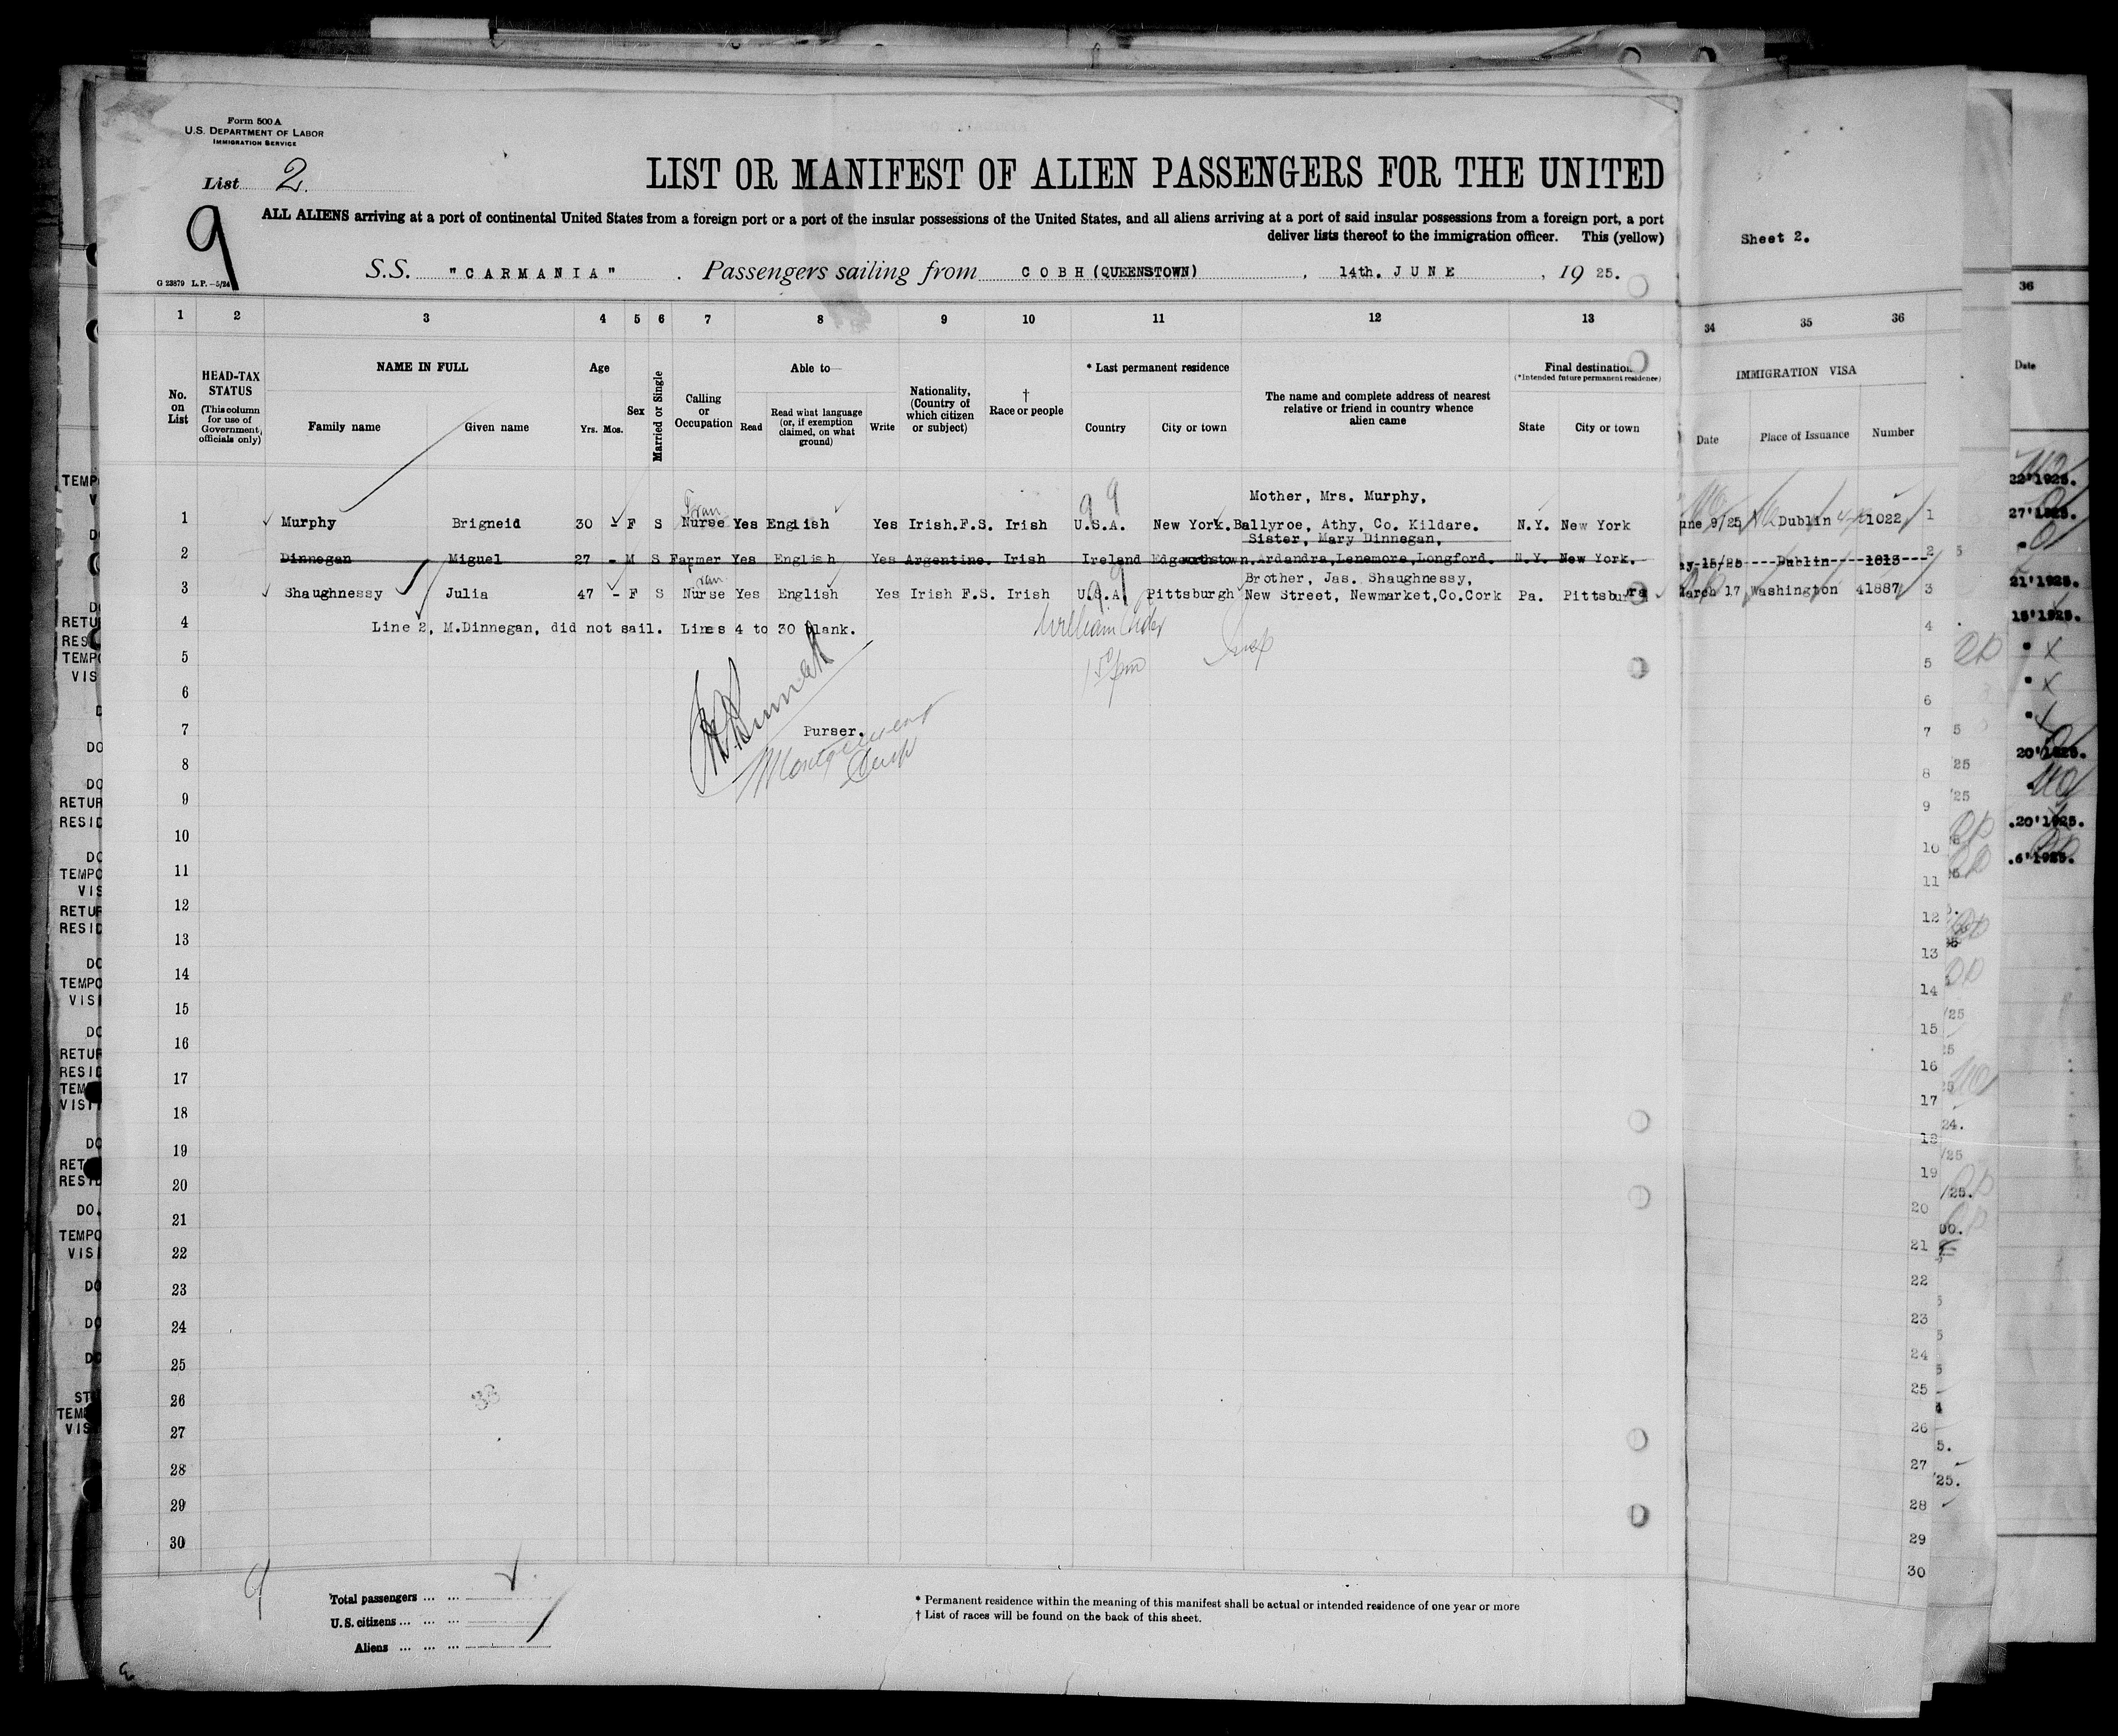 Form 500 A
U.S. DEPARTMENT OF LABOR
IMMIGRATION SERVICE
List 2.
9
LIST OR MANIFEST OF ALIEN PASSENGERS FOR THE UNITED
ALL ALIENS arriving at a port of continental United States from a foreign port or a port of the insular possessions of the United States, and all aliens arriving at a port of said insular possessions from a foreign port, a port
deliver lists thereof to the immigration officer. This (yellow)
Sheet 2.
S.S. "CARMANIA". Passengers sailing from COBH (QUEENSTOWN), 14th. JUNE, 19 25.
G 23879 L.P.—5/24
1 2 3 4 5 6 7 8 9 10 11 12 13 34 35 36
No. on List
HEAD-TAX STATUS (This column for use of Government officials only)
NAME IN FULL
Family name Given name
Age
Yrs. Mos.
Sex
Married or Single
Calling or Occupation
Able to—
Read
Read what language (or, if exemption claimed, on what ground)
Write
Nationality, (Country of which citizen or subject)
† Race or people
* Last permanent residence
Country City or town
The name and complete address of nearest relative or friend in country whence alien came
Final destination
(*Intended future permanent residence)
State City or town
IMMIGRATION VISA
Date Place of Issuance Number
36
Date
Mother, Mrs. Murphy,
1 Murphy Brigneid 30 - F S Nurse Yes English Yes Irish.F.S. Irish U.S.A. New York. Ballyroe, Athy, Co. Kildare. N.Y. New York une 9/25 Dublin 21022 1
Sister, Mary Dinnegan,
2 Dinnegan Miguel 27 - M S Farmer Yes English Yes Argentine. Irish Ireland Edgeworthstown. Ardandra,Lenemore,Longford. N.Y. New York. ay-15/25 Dublin 1813 2
Brother, Jas. Shaughnessy,
3 Shaughnessy Julia 47 - F S Nurse Yes English Yes Irish F.S. Irish U.S.A Pittsburgh New Street, Newmarket,Co.Cork Pa. Pittsburg March 17 Washington 41887 3
4 Line 2, M.Dinnegan, did not sail. Lines 4 to 30 blank. 4
5 5
6 6
7 Purser. 7
8 8
9 9
10 10
11 11
12 12
13 13
14 14
15 15
16 16
17 17
18 18
19 19
20 20
21 21
22 22
23 23
24 24
25 25
26 26
27 27
28 28
29 29
30 30
9
Total passengers
U.S. citizens
Aliens
* Permanent residence within the meaning of this manifest shall be actual or intended residence of one year or more
† List of races will be found on the back of this sheet.